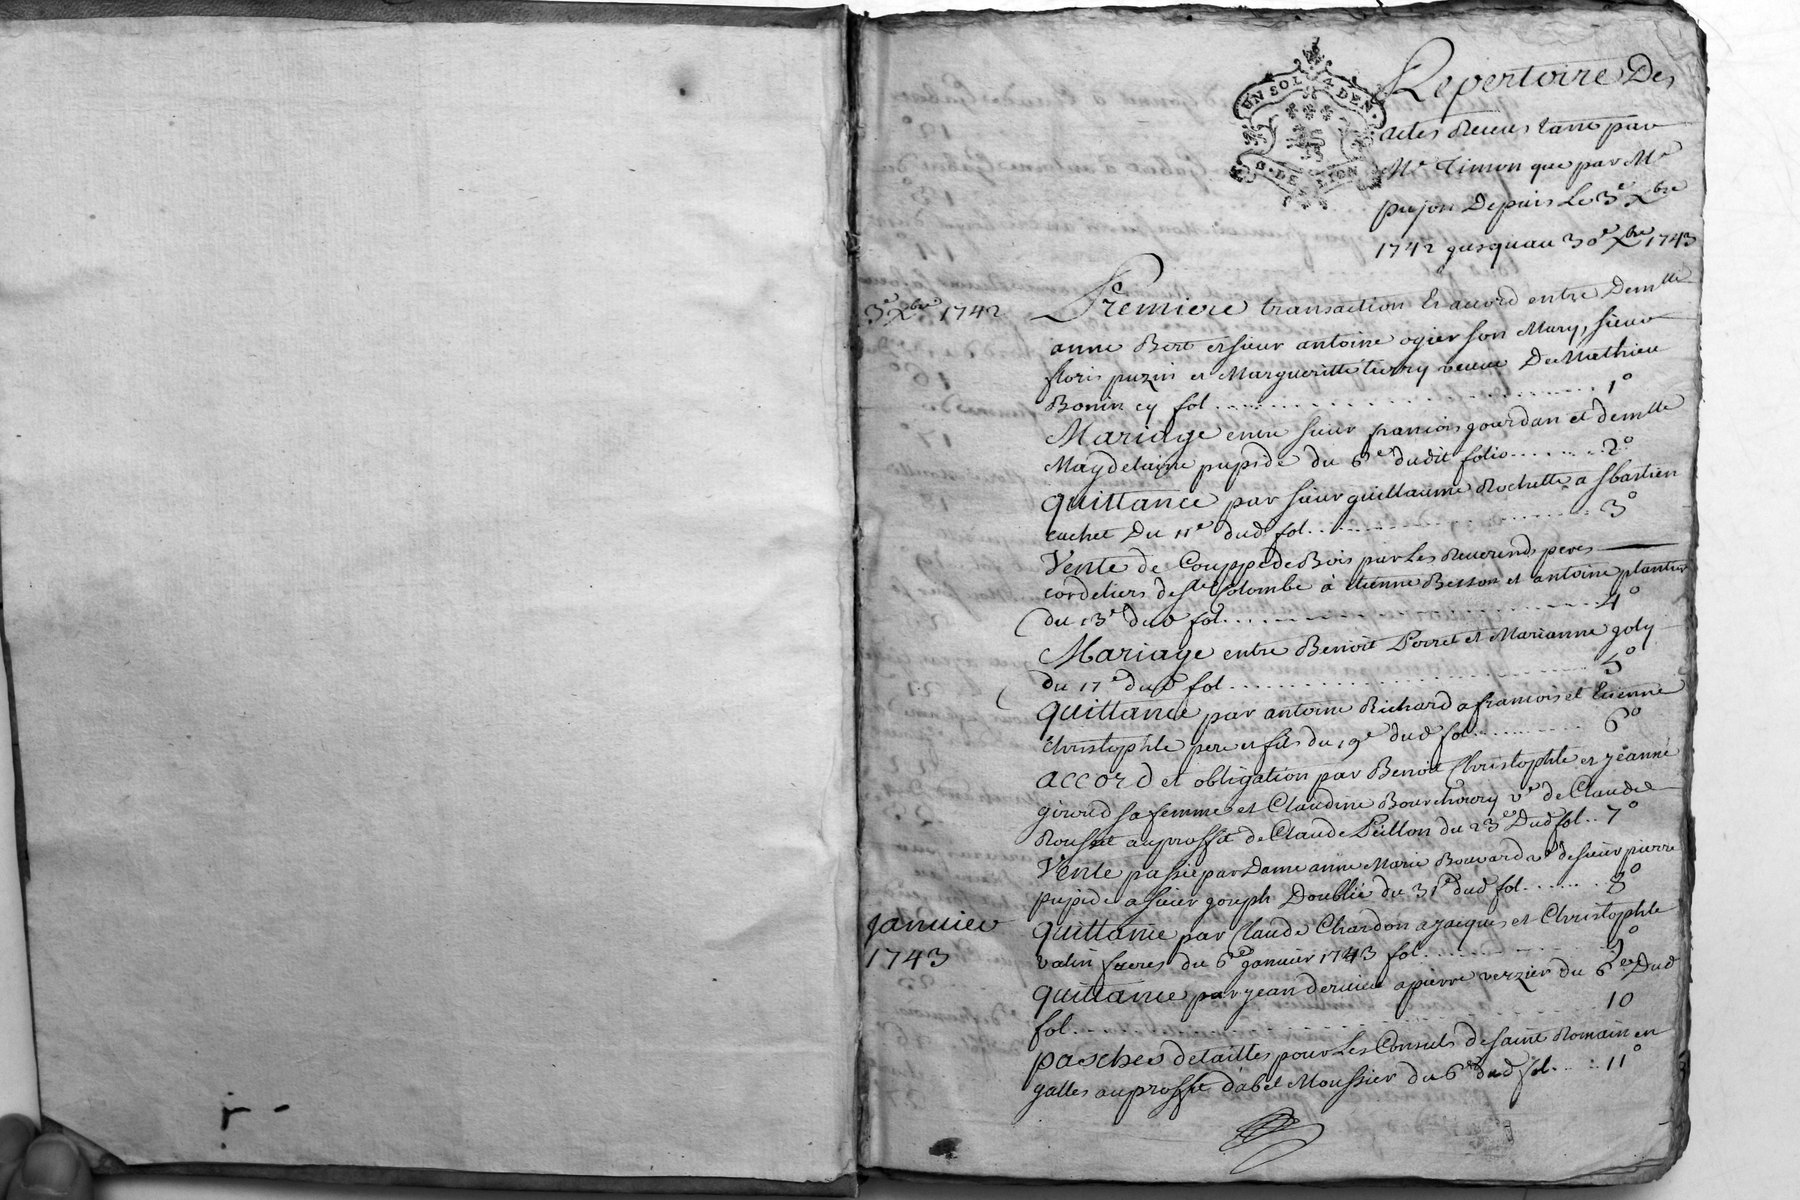 UN SOL 4 DEN.
G. DE LION
Repertoire Des
actes Receus tant par
Me Timon que par Me
pujon Depuis Le 3e Xbre
1742 jusquau 30e Xbre 1743
3e Xbre 1742
Premiere transaction Et accord entre Demlle
anne Bert et sieur antoine ogier son Mary, sieur
floris puzin et Margueritte tierry veuve De Mathieu
Bonin cy fol. 1o
Mariage entre sieur francois gourdan et demlle
Magdelaine pupide du 6e dudit folio 2o
quittance par sieur guillaume Rochette a sbastien
cachet Du 11e dud fol. 3o
Vente de Couppe de Bois par Les Reverends peres
cordeliers de ste Colombe à Etienne Besson et antoine plantier
du 13e dud fol. 4o
Mariage entre Benoit Perret et Marianne goly
du 17e dud fol. 5o
quittance par antoine Richard a francois et Etienne
Christophle pere et fils du 19e dud fol. 6o
accord et obligation par Benoit Christophle et jeanne
giroud sa femme et Claudine ve de Claude
Rousset au proffit de Claude Peillon du 23e Dud fol. 7o
Vente passée par Dame anne Marie Bouvard ve de sieur pierre
pupide a sieur joseph Doublié du 31e dud fol. 8o
janvier
1743
quittance par Claude Chardon a jacques et Christophle
valin freres du 6e janvier 1743 fol. 9o
quittance par jean dervieu a pierre verzier du 6e Dud
fol. 10
pasches de tailles pour Les Consuls de saint Romain en
galles au proffit d'abel Moussier du 6e dud fol. 11o